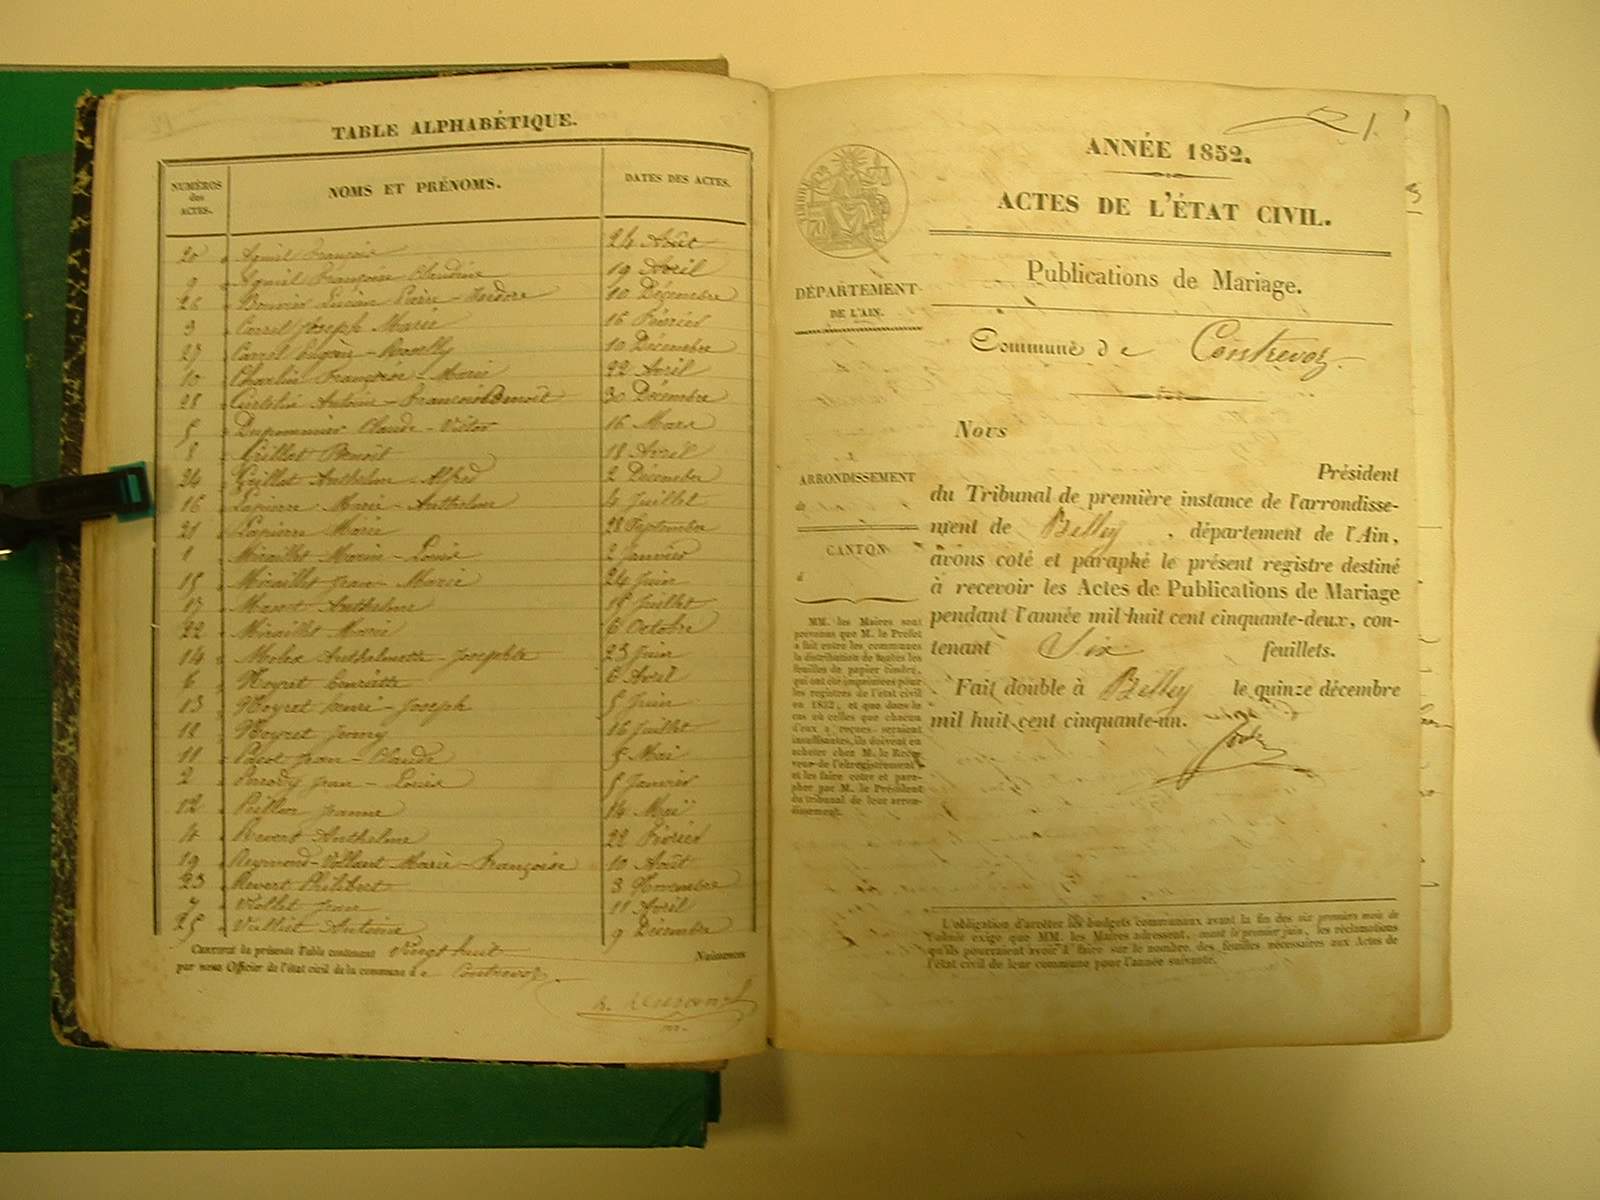 TABLE ALPHABÉTIQUE.
NUMÉROS des ACTES.
NOMS ET PRÉNOMS.
DATES DES ACTES.
20 François 24 Août
9 Françoise Claudine 19 Avril
26 Bouvier Lucien Pierre - Isidore 10 Décembre
3 Carrel Joseph Marie 16 Février
27 Carrel 10 Décembre
10 Charlin Françoise - Marie 22 Avril
28 Antoine - François Benoît 30 Décembre
5 Duponnier Claude - Victor 16 Mars
8 Grillot Benoît 18 Avril
24 Grillot Anthelme - Alfred 2 Décembre
16 Lapierre Marie - Anthelme 4 Juillet
21 Lapierre Marie 28 Septembre
1 Miraillet Marie - Louise 2 Janvier
15 Miraillet Jean - Marie 24 Juin
17 Anthelme 15 Juillet
22 Miraillet Marie 6 Octobre
14 Molex Anthelmette - Josephte 23 Juin
6 Noyret Henriette 6 Avril
13 Noyret Henri - Joseph 5 Juin
Noyret Jenny 16 Juillet
11 Pacot Jean - Claude 5 Mai
2 Parody Jean - Louis 5 Janvier
12 Peillon Jeanne 14 Mai
4 Revert Anthelme 22 Février
19 Reymond-Vollant Marie - Françoise 10 Août
23 Revert Philibert 3 Novembre
7 Viollet Jean 11 Avril
25 Antoine 9 Décembre
CERTIFIÉ la présente Table contenant Vingt huit Naissances
par nous Officier de l'état civil de la commune de Contrevoz
1.
ANNÉE 1852.
ACTES DE L'ÉTAT CIVIL.
Publications de Mariage.
Commune de Contrevoz.
DÉPARTEMENT
DE L'AIN.
ARRONDISSEMENT
d
CANTON
d
MM. les Maires sont
prévenus que M. le Préfet
a fait entre les communes
la distribution de toutes les
feuilles de papier timbré,
qui ont été imprimées pour
les registres de l'état civil
en 1852, et que dans le
cas où celles que chacun
d'eux a reçues seraient
insuffisantes, ils doivent en
acheter chez M. le Rece-
veur de l'enregistrement
et les faire coter et para-
pher par M. le Président
du tribunal de leur arron-
dissement.
Nous
Président
du Tribunal de première instance de l'arrondisse-
ment de Belley, département de l'Ain,
avons coté et paraphé le présent registre destiné
à recevoir les Actes de Publications de Mariage
pendant l'année mil huit cent cinquante-deux, con-
tenant Six feuillets.
Fait double à Belley le quinze décembre
mil huit cent cinquante-un.
L'obligation d'arrêter les budgets communaux avant la fin des six premiers mois de
l'année exige que MM. les Maires adressent, avant le premier juin, les réclamations
qu'ils pourraient avoir à faire sur le nombre des feuilles nécessaires aux Actes de
l'état civil de leur commune pour l'année suivante.